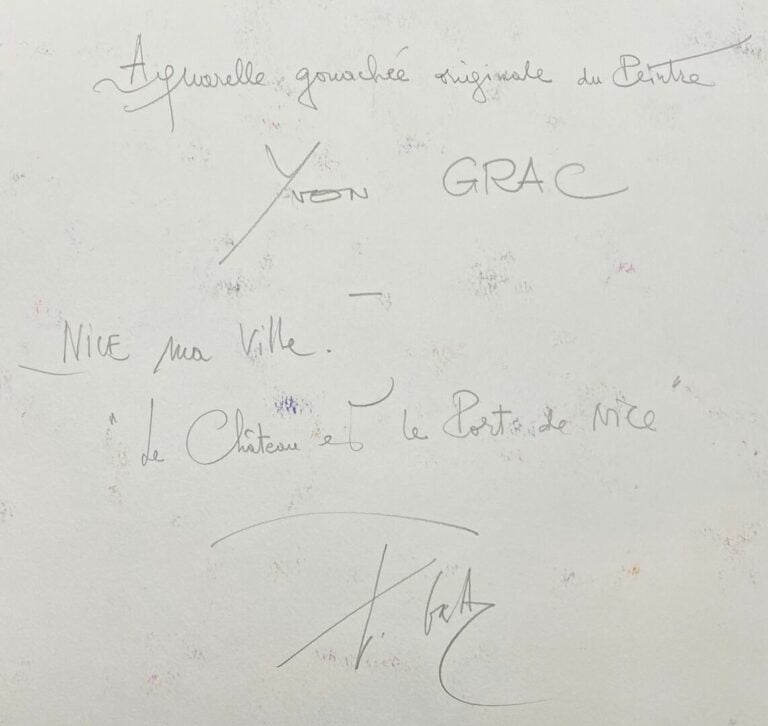 Aquarelle gouachée originale du Peintre
Yvon GRAC
—
NICE ma Ville.
"Le Château et le Port de NICE"
Y. Grac